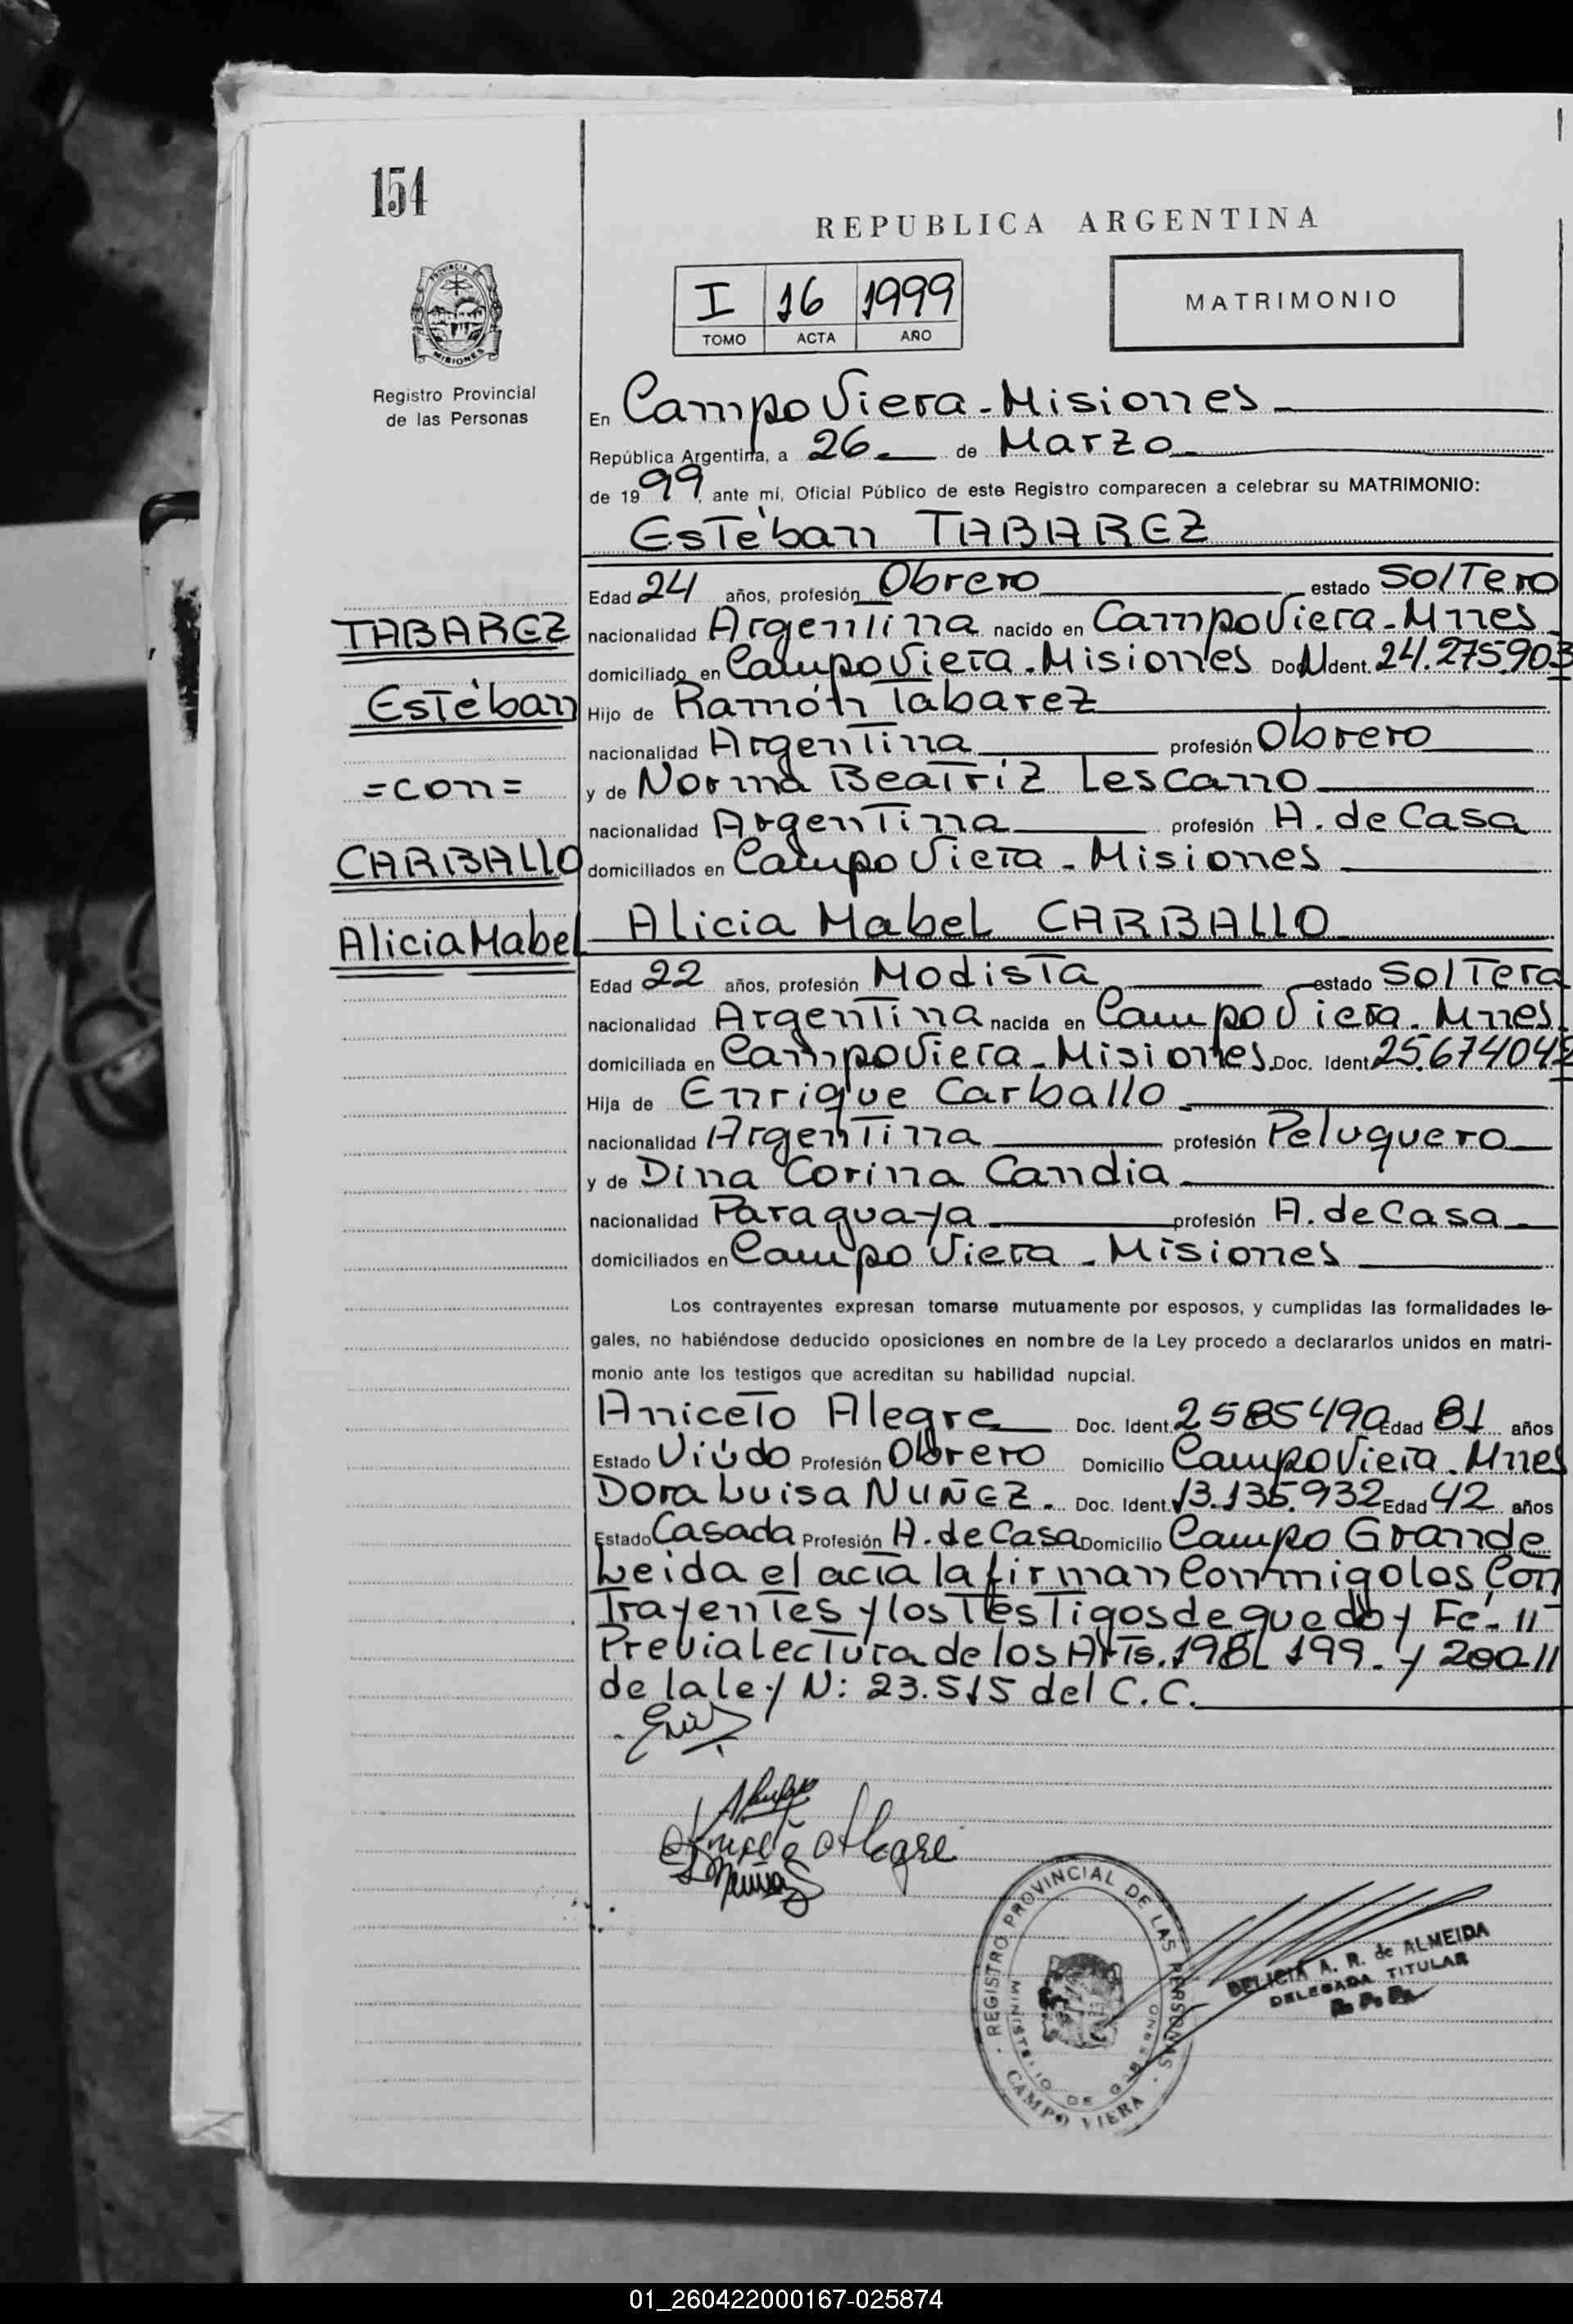 154
REPUBLICA ARGENTINA
I 16 1999
TOMO ACTA AÑO
MATRIMONIO
PROVINCIA DE
MISIONES
Registro Provincial
de las Personas
En Campo Viera - Misiones
República Argentina, a 26 de Marzo
de 1999, ante mí, Oficial Público de este Registro comparecen a celebrar su MATRIMONIO:
Estéban TABAREZ
Edad 24 años, profesión Obrero estado Soltero
TABAREZ
nacionalidad Argentina nacido en Campo Viera - Mnes
domiciliado en Campo Viera - Misiones Doc. Ident. 24.275.903
Estéban
Hijo de Ramón Tabarez
nacionalidad Argentina profesión Obrero
=con=
y de Norma Beatriz Lescano
nacionalidad Argentina profesión A. de Casa
CARBALLO
domiciliados en Campo Viera - Misiones
Alicia Mabel
Alicia Mabel CARBALLO
Edad 22 años, profesión Modista estado Soltera
nacionalidad Argentina nacida en Campo Viera - Mnes.
domiciliada en Campo Viera - Misiones. Doc. Ident. 25.674042
Hija de Enrique Carballo
nacionalidad Argentina profesión Peluquero
y de Dina Corina Candia
nacionalidad Paraguaya profesión A. de Casa
domiciliados en Campo Viera - Misiones
Los contrayentes expresan tomarse mutuamente por esposos, y cumplidas las formalidades le-
gales, no habiéndose deducido oposiciones en nombre de la Ley procedo a declararlos unidos en matri-
monio ante los testigos que acreditan su habilidad nupcial.
Aniceto Alegre Doc. Ident. 2585490 Edad 81 años
Estado Viúdo Profesión Obrero Domicilio Campo Viera - Mnes
Dora Luisa NUÑEZ. Doc. Ident. 13.135.932 Edad 42 años
Estado Casada Profesión A. de Casa Domicilio Campo Grande
Leida el acta la firman Conmigo los Con
Trayentes y los Testigos de que doy Fé-//
Previa lectura de los Arts. 198 199. y 200 //
de la ley N: 23.515 del C.C.
Aniceto Alegre
REGISTRO PROVINCIAL DE LAS PERSONAS
MINISTERIO DE
CAMPO VIERA
DELICIA A. R. de ALMEIDA
DELEGADA TITULAR
R. P. P.
01_260422000167-025874